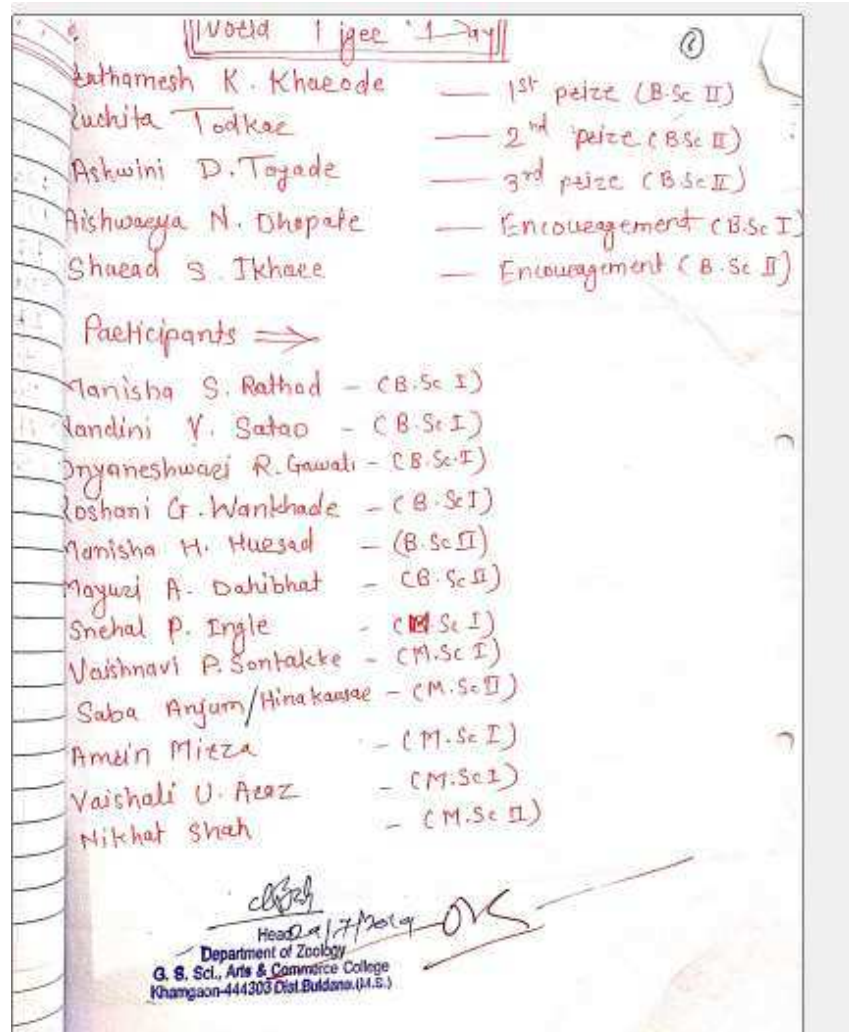 World Tiger Day
①
Prathamesh K. Kharode — 1st prize (B.Sc II)
Ruchita Todkar — 2nd prize (BSc II)
Ashwini D. Tayade — 3rd prize (B.Sc II)
Aishwarya N. Dhopate — Encouragement (B.Sc I)
Sharad S. Ikhare — Encouragement (B.Sc II)
Participants ⇒
Manisha S. Rathod - (B.Sc I)
Nandini V. Satao - (B.Sc I)
Dnyaneshwari R. Gawali - (B.Sc.I)
Roshani G. Wankhade - (B.Sc I)
Manisha H. Hursad - (B.Sc II)
Mayuri A. Dahibhat - (B.Sc II)
Snehal P. Ingle - (B.Sc I)
Vaishnavi P. Sontakke - (M.Sc I)
Saba Anjum/Hina - (M.Sc II)
Mirza - (M.Sc I)
Vaishali U. - (M.Sc I)
Nikhat Shah - (M.Sc II)
Head 29/7/2019
Department of Zoology
G. S. Sci., Arts & Commerce College
Khamgaon-444303 Dist.Buldana.(M.S.)